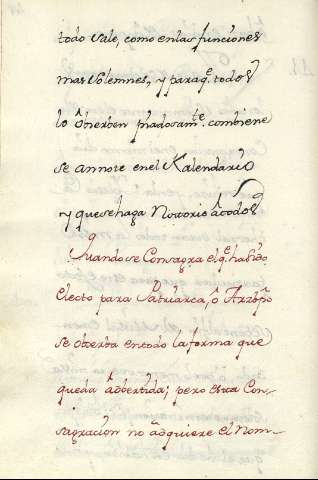 todo vale, como en las funciones
mas Solemnes, y paraq.e todos
lo observen puadosam.te combiene
se annote en el Kalendario
y que se haga Notorio à todos
Quando se Consagra el q.e há sido
Electo para Patriarca, ô Arzob.po
se observa en todo la forma que
queda advertida; pero esta Con-
sagracion no adquiere el Nom-